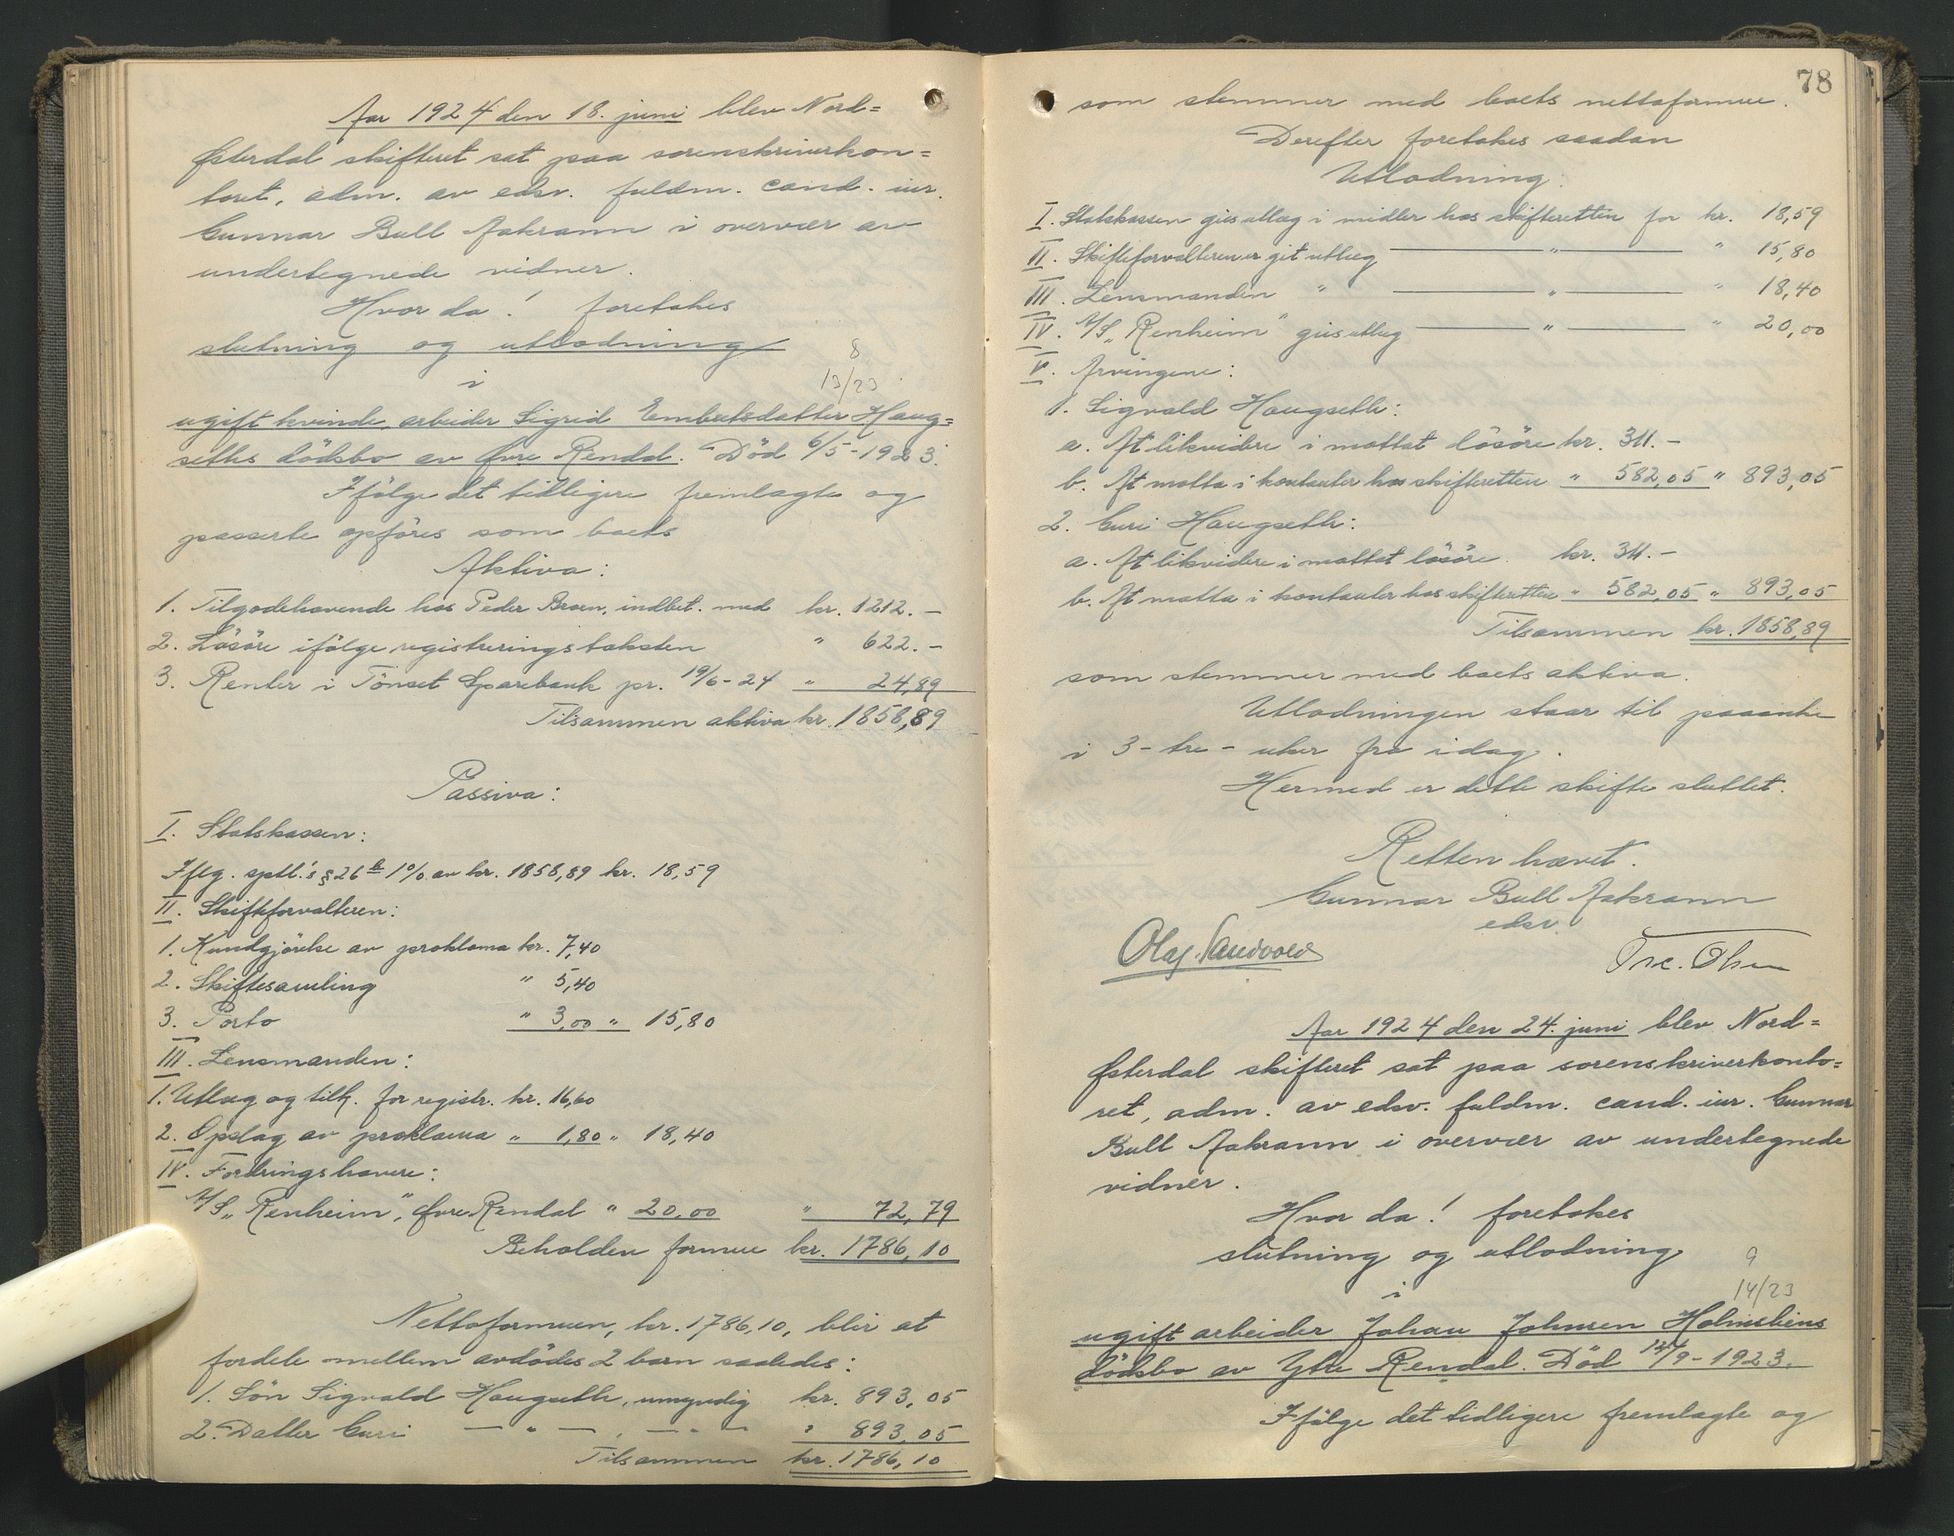 Aar 1924 den 18. juni blev Nord=
Østerdal skifteret sat paa sorenskriverkon=
toret, adm. av edsv. fuldm. cand. iur.
Gunnar Bull Aakrann i overvær av
undertegnede vidner.
Hvor da! foretokes
slutning og utlodning
8
i 13/23
ugift kvinde, arbeider Sigrid Embretsdatter Haug=
seths dödsbo av Øvre Rendal. Död 6/5-1923.
Ifölge det tidligere fremlagte og
passerte opföres som boets
Aktiva:
1. Tilgodehavende hos Peder Broen, indbet. med kr. 1212.-
2. Lösöre ifölge registreringstaksten " 622.-
3. Renter i Tönset Sparebank pr. 19/6-24 " 24,89
Tilsammen aktiva kr. 1858,89
Passiva:
I. Statskassen:
Iflg. sptl.'s § 26 b 1% av kr. 1858,89 kr. 18,59
II. Skifteforvalteren:
1. Kundgjörelse av proklama kr. 7,40
2. Skiftesamling " 5,40
3. Porto " 3,00 " 15,80
III. Lensmanden:
1. Utlæg og tilh. for registr. kr. 16,60
2. Opslag av proklama " 1,80 " 18,40
IV. Fordringshavere:
A/S „Renheim", Øvre Rendal " 20,00 " 72,79
Beholden formue kr. 1786,10
Nettoformuen, kr. 1786,10, blir at
fordele mellem avdödes 2 barn saaledes:
1. Sön Sigvald Haugseth, umyndig kr. 893,05
2. Datter Guri — " — , — " — " 893,05
Tilsammen kr. 1786,10
78
som stemmer med boets nettoformue.
Derefter foretokes saadan
Utlodning:
I. Statskassen gives utlæg i midler hos skifteretten for kr. 18,59
II. Skifteforvalteren er git utlæg — " — " 15,80
III. Lensmanden " — " — " 18,40
IV. A/S „Renheim" gives utlæg — " — " 20,00
V. Arvingene:
1. Sigvald Haugseth:
a. At likvidere i mottat lösöre kr. 311.-
b. At motta i kontanter hos skifteretten " 582,05 " 893,05
2. Guri Haugseth:
a. At likvidere i mottat lösöre kr. 311.-
b. At motta i kontanter hos skifteretten " 582,05 " 893,05
Tilsammen kr. 1858,89
som stemmer med boets aktiva.
Utlodningen staar til paaanke
i 3 - tre - uker fra idag.
Hermed er dette skifte sluttet.
Retten hævet.
Gunnar Bull Aakrann
edsv.
Olaf Sandvold Tre. Olsen
Aar 1924 den 24. juni blev Nord=
Østerdal skifteret sat paa sorenskriverkonto=
ret, adm. av edsv. fuldm. cand. iur. Gunnar
Bull Aakrann i overvær av undertegnede
vidner.
Hvor da! foretokes
slutning og utlodning
9
i 14/23
ugift arbeider Johan Johnsen Holmstiens
dödsbo av Ytre Rendal. Död 12/9-1923.
Ifölge det tidligere fremlagte og